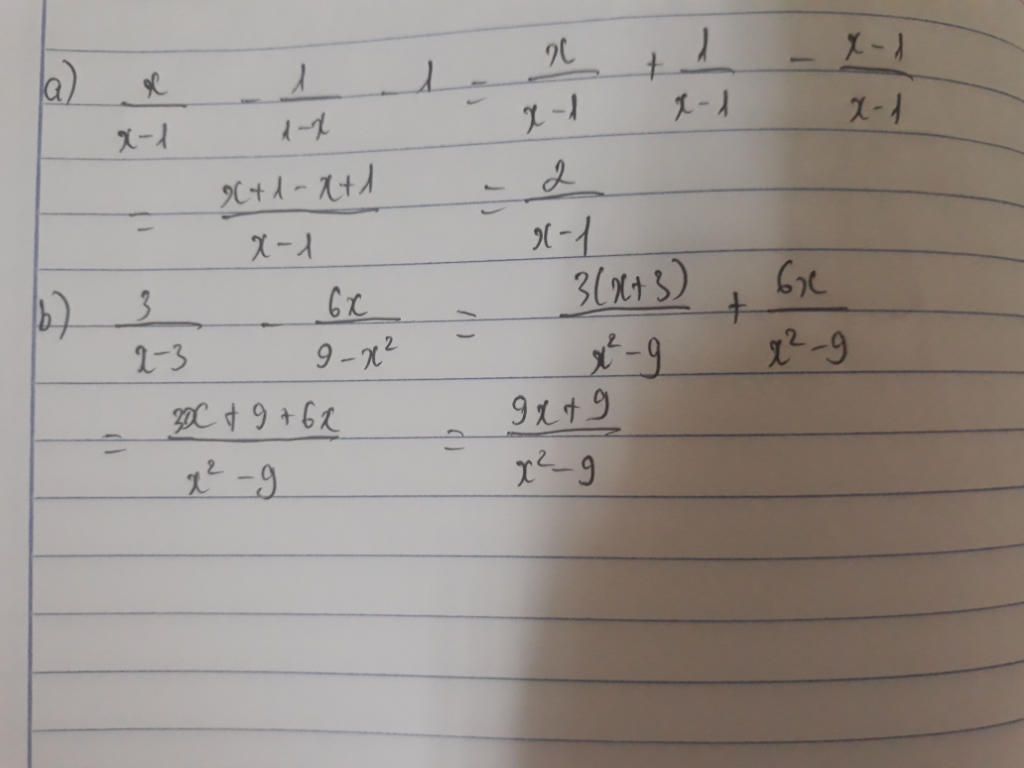 a) x/(x-1) - 1/(1-x) - 1 = x/(x-1) + 1/(x-1) - (x-1)/(x-1)
= (x+1-x+1)/(x-1) = 2/(x-1)
b) 3/(x-3) - 6x/(9-x²) = 3(x+3)/(x²-9) + 6x/(x²-9)
= (3x+9+6x)/(x²-9) = (9x+9)/(x²-9)